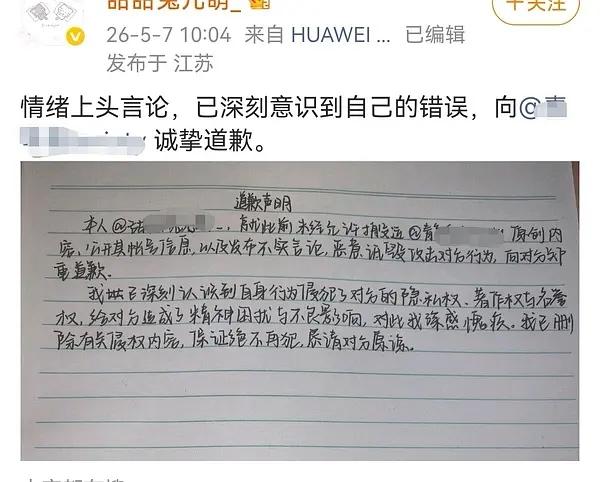 26-5-7 10:04 来自 HUAWEI ... 已编辑
发布于 江苏
+关注
情绪上头言论，已深刻意识到自己的错误，向@
诚挚道歉。
道歉声明
本人@ ，就此前未经允许搬运@ 原创内
容，公开其帐号信息，以及发布不实言论，恶意诋毁攻击对方行为，向对方郑
重道歉。
我 已深刻认识到自身行为侵犯了对方的隐私权、著作权与名誉
权，给对方造成了精神困扰与不良影响，对此我深感愧疚。我已删
除有关侵权内容，保证绝不再犯，恳请对方原谅。